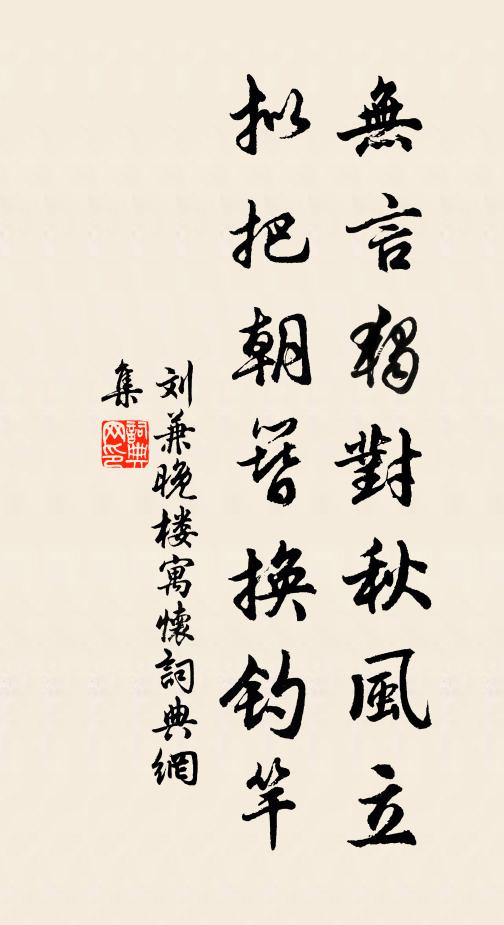 無言獨對秋風立
拟把朝簪換釣竿
刘兼晚楼寓懷詞典網
集
詞典
网印